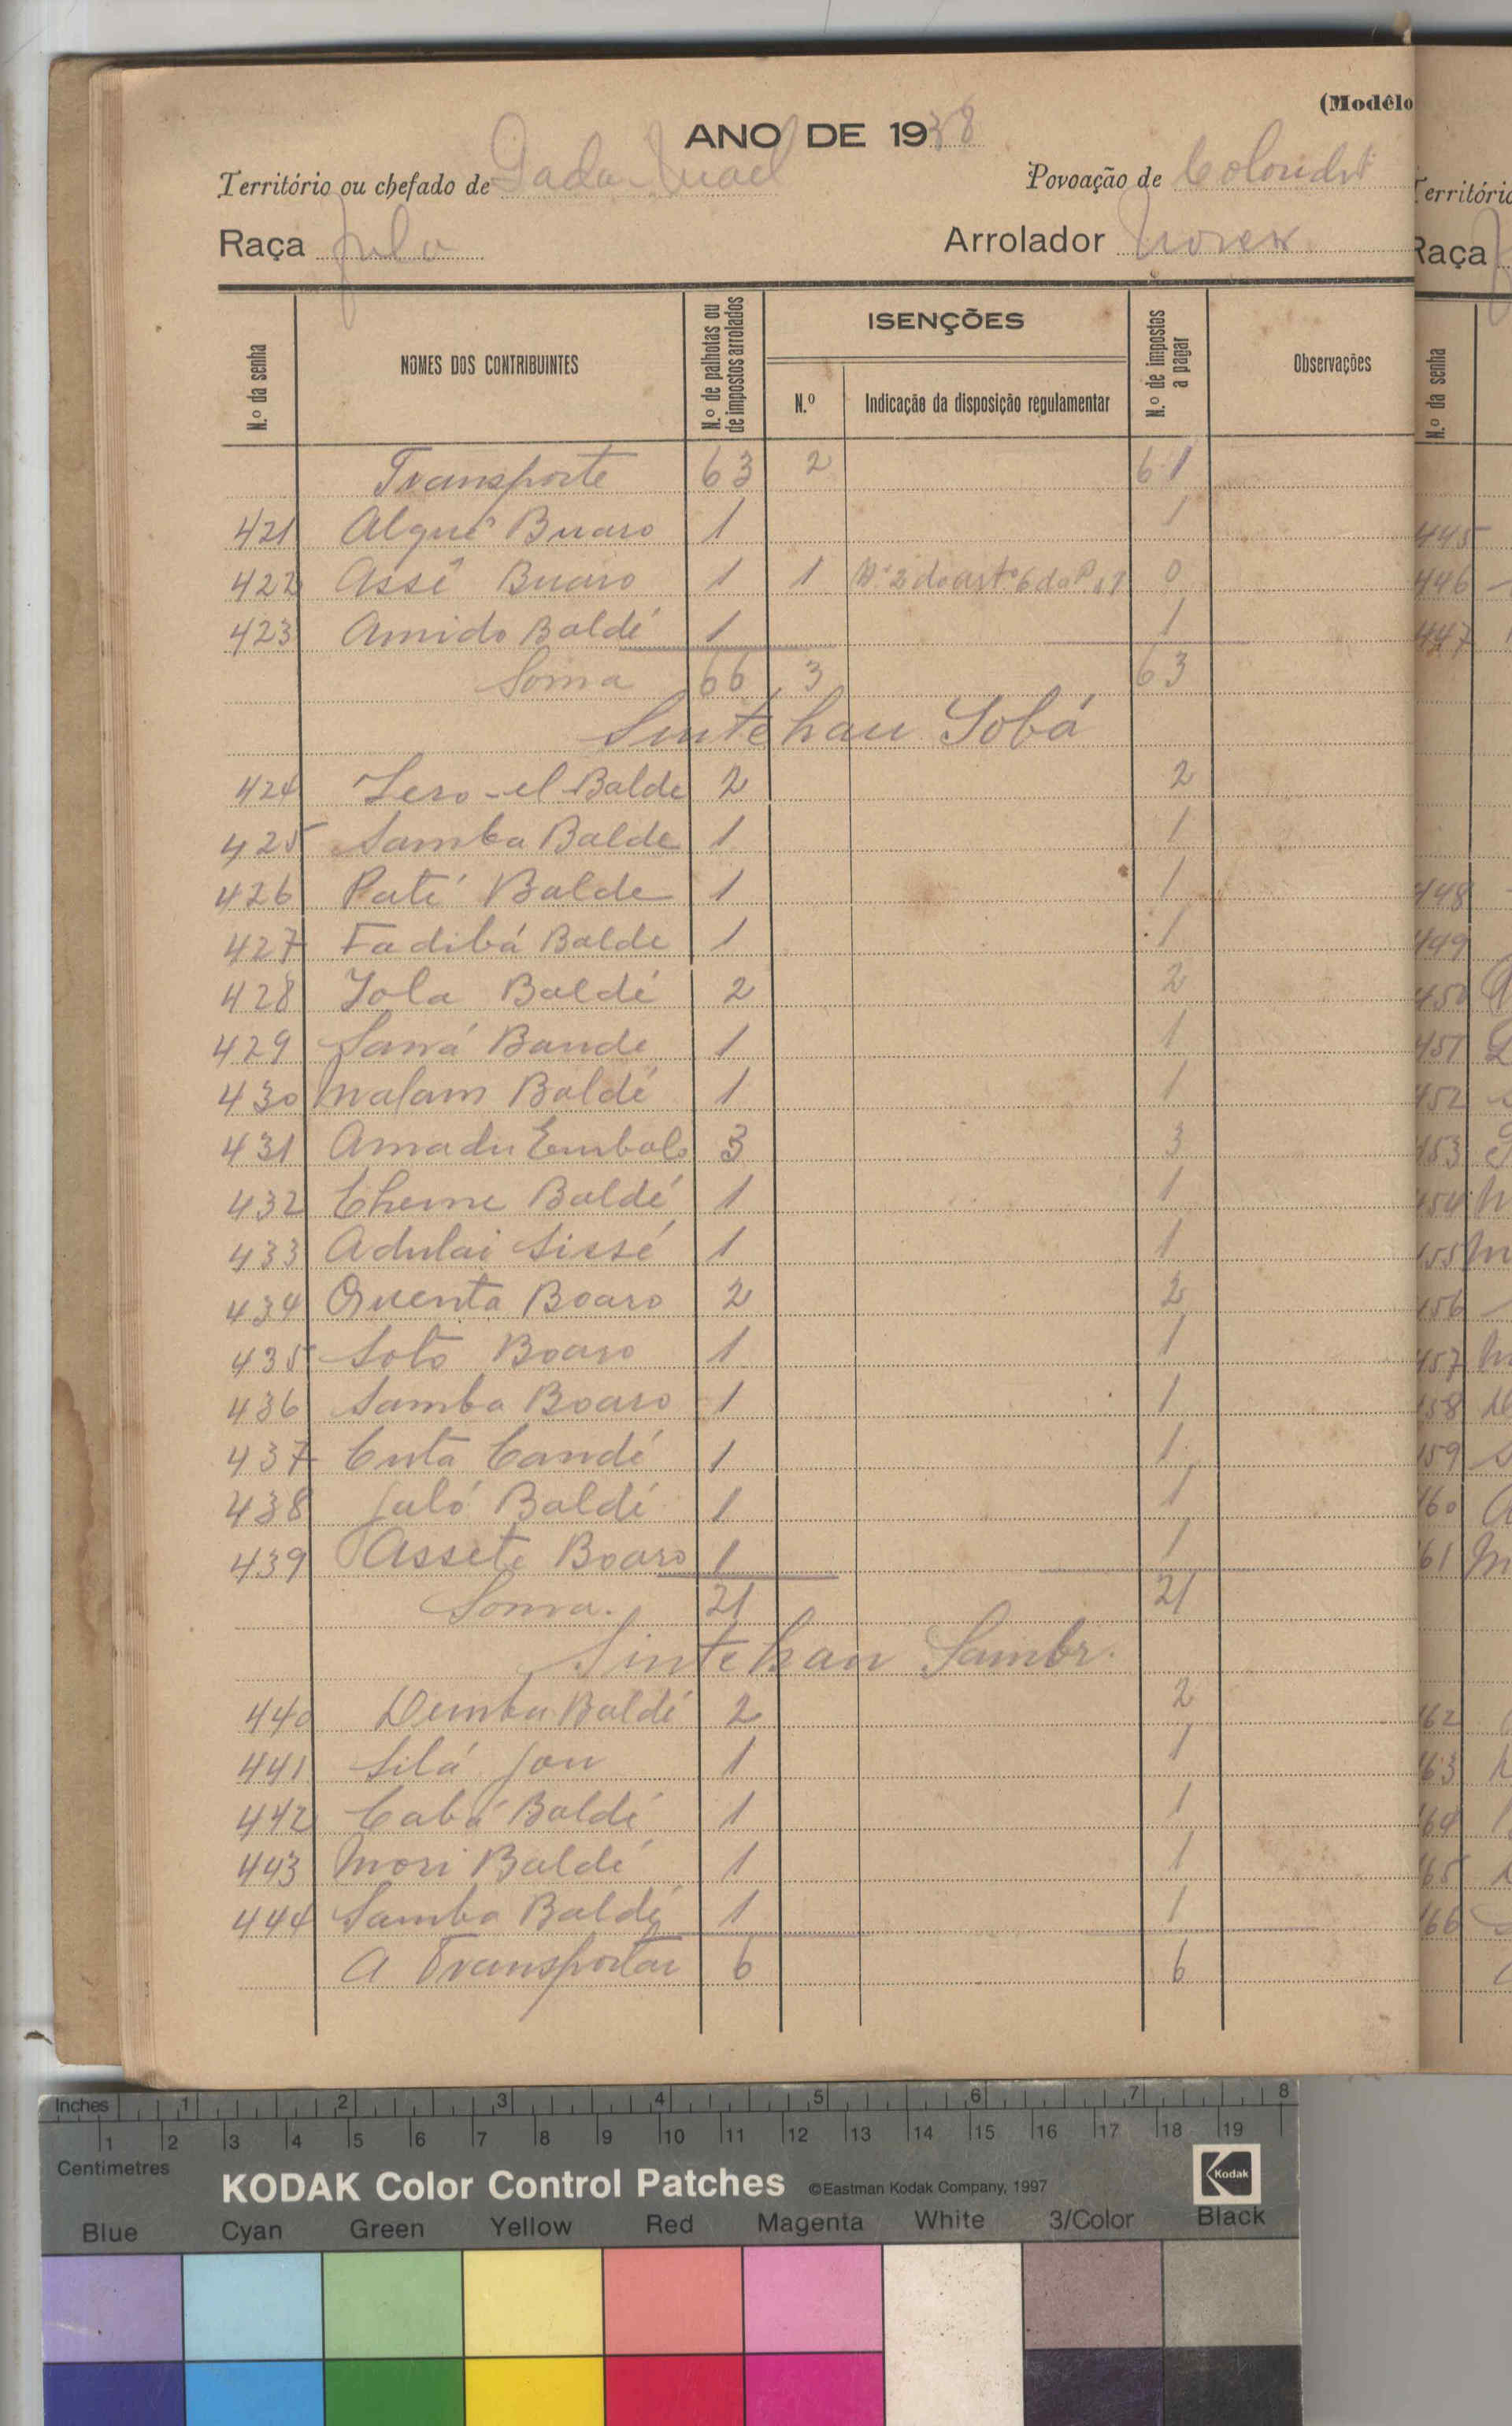 (Modêlo
ANO DE 1938
Território ou chefado de Gada Mael Povoação de
Raça fula Arrolador
N.º da senha NOMES DOS CONTRIBUINTES N.º de palhotas ou de impostos arrolados ISENÇÕES N.º Indicação da disposição regulamentar N.º de impostos a pagar Observações
Transporte 63 2 61
421 Algué Buaro 1 1
422 Assê Buaro 1 1 N.º 2 do artº 6 do 0
423 Amido Baldé 1 1
Soma 66 3 63
Sintchau Iobá
424 Balde 2 2
425 Samba Balde 1 1
426 Paté Balde 1 1
427 Fadibá Balde 1 1
428 Iola Baldé 2 2
429 Bande 1 1
430 Malam Baldé 1 1
431 Amadu Embaló 3 3
432 Cherne Baldé 1 1
433 Adulai Sissé 1 1
434 Quenta Boaro 2 2
435 Soto Boaro 1 1
436 Samba Boaro 1 1
437 Cuta Candé 1 1
438 Jaló Baldé 1 1
439 Assete Boaro 1 1
Soma. 21 21
Sintchau Sambr.
440 Demba Baldé 2 2
441 Silá Jau 1 1
442 Cabá Baldé 1 1
443 Mori Baldé 1 1
444 Samba Baldé 1 1
A Transportar 6 6
Território
Raça
N.º da senha
445
446
447
448
449
450
451
452
453
454
455
456
457
458
459
460
461
462
463
464
465
466
Inches 1 2 3 4 5 6 7 8
1 2 3 4 5 6 7 8 9 10 11 12 13 14 15 16 17 18 19
Centimetres
KODAK Color Control Patches ©Eastman Kodak Company, 1997 Kodak
Blue Cyan Green Yellow Red Magenta White 3/Color Black